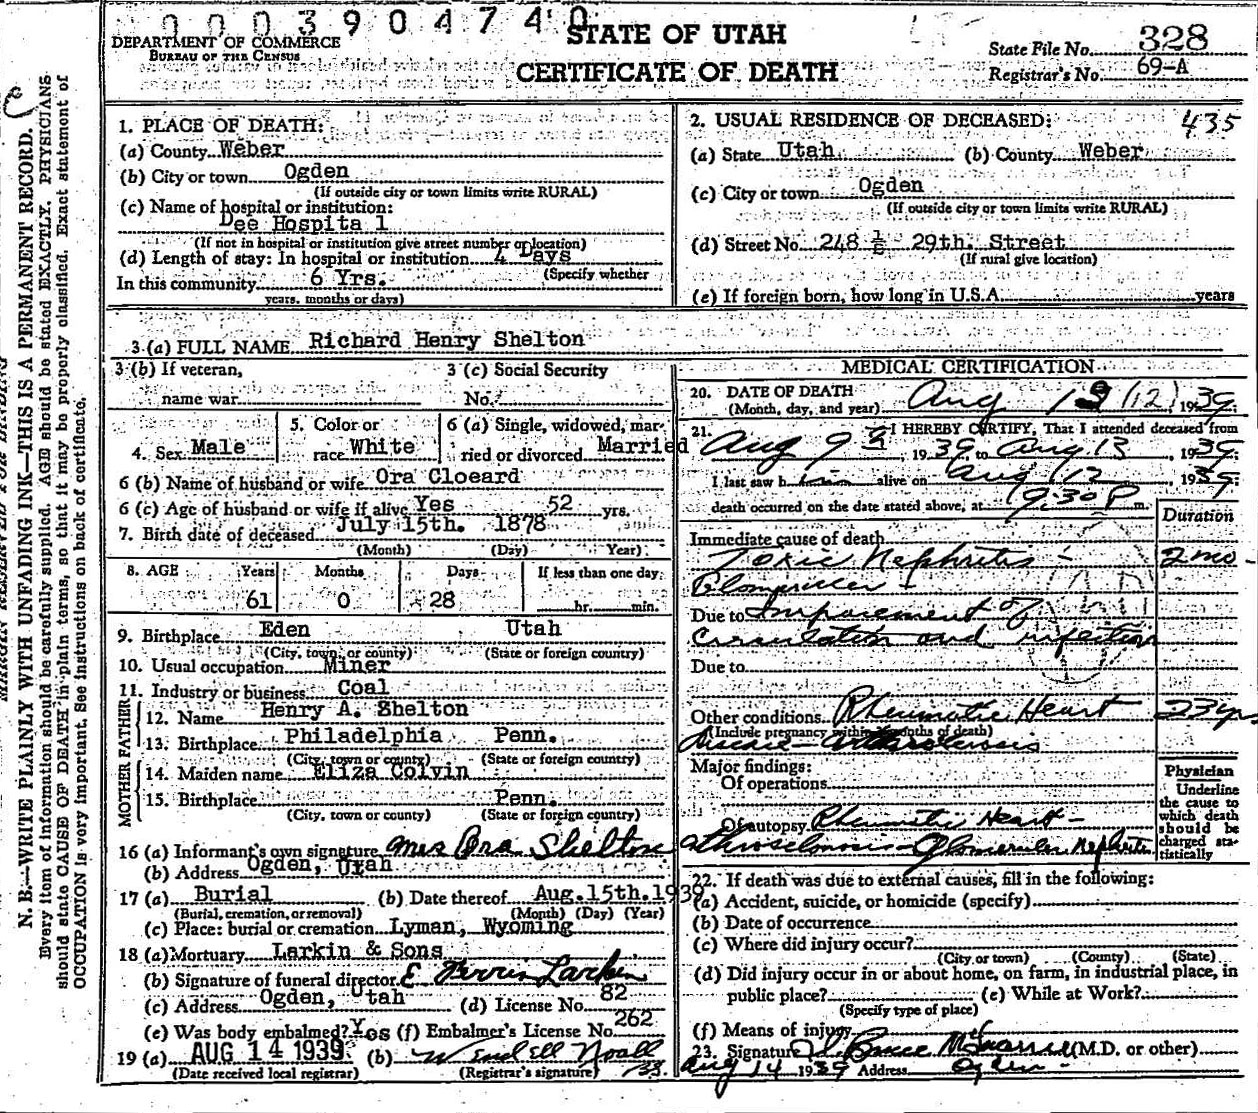 000390474 0
DEPARTMENT OF COMMERCE
BUREAU OF THE CENSUS
STATE OF UTAH
CERTIFICATE OF DEATH
State File No. 328
Registrar's No. 69-A
N. B.—WRITE PLAINLY WITH UNFADING INK—THIS IS A PERMANENT RECORD.
Every item of information should be carefully supplied. AGE should be stated EXACTLY. PHYSICIANS
should state CAUSE OF DEATH in plain terms, so that it may be properly classified. Exact statement of
OCCUPATION is very important. See instructions on back of certificate.
1. PLACE OF DEATH:
(a) County Weber
(b) City or town Ogden
(If outside city or town limits write RURAL)
(c) Name of hospital or institution:
Dee Hospita l
(If not in hospital or institution give street number or location)
(d) Length of stay: In hospital or institution 4 Days
(Specify whether
In this community 6 Yrs.
years, months or days)
2. USUAL RESIDENCE OF DECEASED: 435
(a) State Utah (b) County Weber
(c) City or town Ogden
(If outside city or town limits write RURAL)
(d) Street No. 248 ½ 29th. Street
(If rural give location)
(e) If foreign born, how long in U.S.A. years
3 (a) FULL NAME Richard Henry Shelton
3 (b) If veteran,
name war
3 (c) Social Security
No.
4. Sex Male
5. Color or
race White
6 (a) Single, widowed, mar-
ried or divorced Married
6 (b) Name of husband or wife Ora Cloeard
6 (c) Age of husband or wife if alive Yes 52 yrs.
7. Birth date of deceased July 15th. 1878
(Month) (Day) Year)
8. AGE Years Months Days If less than one day
61 0 28 hr. min.
9. Birthplace Eden Utah
(City, town, or county) (State or foreign country)
10. Usual occupation Miner
11. Industry or business Coal
FATHER
12. Name Henry A. Shelton
13. Birthplace Philadelphia Penn.
(City, town or county) (State or foreign country)
MOTHER
14. Maiden name Eliza Colvin
15. Birthplace Penn.
(City, town or county) (State or foreign country)
16 (a) Informant's own signature Mrs Ora Shelton
(b) Address Ogden, Utah
17 (a) Burial (b) Date thereof Aug.15th.1939
(Burial, cremation, or removal) (Month) (Day) (Year)
(c) Place: burial or cremation Lyman, Wyoming
18 (a) Mortuary Larkin & Sons
(b) Signature of funeral director E Ferrin Larkin
(c) Address Ogden, Utah (d) License No. 82
(e) Was body embalmed? Yes (f) Embalmer's License No. 262
19 (a) AUG 14 1939 (b) Wendell Noall
(Date received local registrar) (Registrar's signature)
MEDICAL CERTIFICATION
20. DATE OF DEATH
(Month, day, and year) Aug 13 (12) 1939
21. I HEREBY CERTIFY, That I attended deceased from
Aug 9th, 1939 to Aug 13, 1939
I last saw him alive on Aug 12, 1939
death occurred on the date stated above, at 9:30 P m.
Duration
Immediate cause of death
Toxic Nephritis - 2 mo -
Due to Impairement of
Circulation and infection
Due to
Other conditions Rheumatic Heart 23 yrs
(Include pregnancy within 3 months of death)
Disease -
Major findings:
Of operations
Of autopsy Rheumatic Heart -
Glomerular Nephritis
Physician
Underline
the cause to
which death
should be
charged sta-
tistically
22. If death was due to external causes, fill in the following:
(a) Accident, suicide, or homicide (specify)
(b) Date of occurrence
(c) Where did injury occur?
(City or town) (County) (State)
(d) Did injury occur in or about home, on farm, in industrial place, in
public place? (e) While at Work?
(Specify type of place)
(f) Means of injury
23. Signature Bruce (M.D. or other)
Aug 14 1939 Address Ogden -